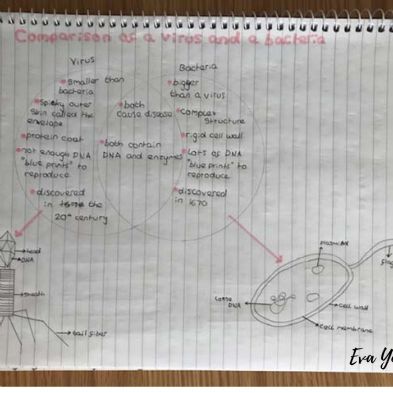 Comparison of a virus and a bacteria
Virus
smaller than
bacteria
Spiky outer
skin called the
envelope
protein coat
not enough DNA
"blue prints" to
reproduce
discovered
in the
20th century
both
cause disease
both contain
DNA and enzymes
Bacteria
bigger
than a virus
complex
structure
rigid cell wall
Lots of DNA
"blue prints" to
reproduce
discovered
in 1670
head
DNA
sheath
tail fiber
plasmids
Loose
DNA
cell wall
cell membrane
Eva